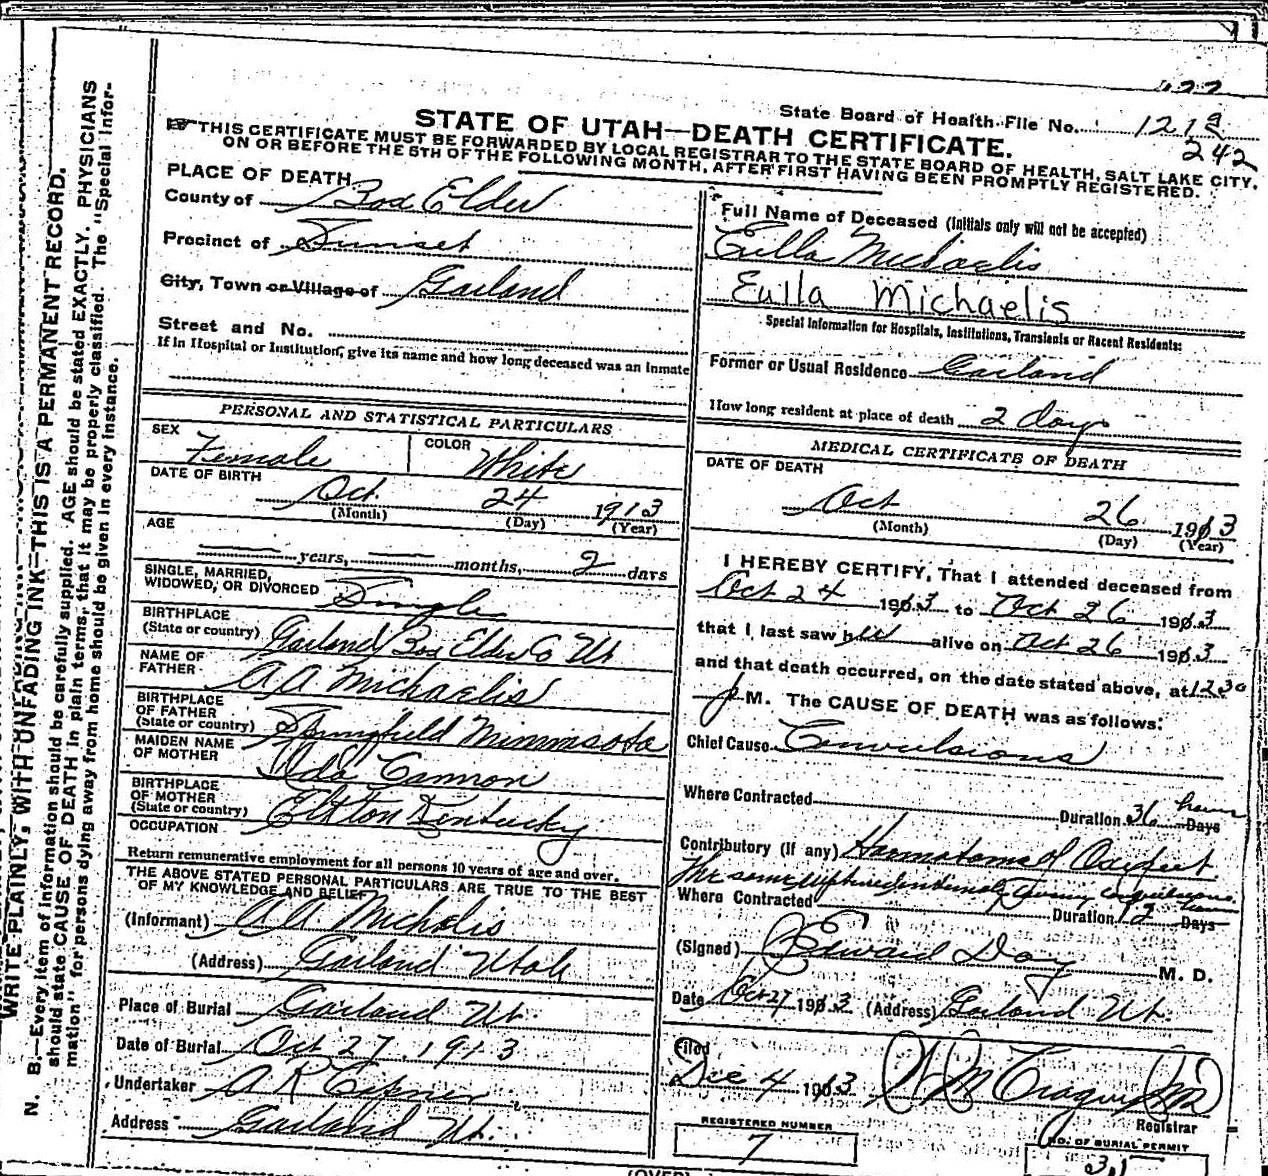 State Board of Health File No. 1219
242
STATE OF UTAH—DEATH CERTIFICATE.
THIS CERTIFICATE MUST BE FORWARDED BY LOCAL REGISTRAR TO THE STATE BOARD OF HEALTH, SALT LAKE CITY,
ON OR BEFORE THE 5TH OF THE FOLLOWING MONTH, AFTER FIRST HAVING BEEN PROMPTLY REGISTERED.
WRITE PLAINLY, WITH UNFADING INK—THIS IS A PERMANENT RECORD.
N. B.—Every item of information should be carefully supplied. AGE should be stated EXACTLY. PHYSICIANS
should state CAUSE OF DEATH in plain terms, that it may be properly classified. The "Special Infor-
mation" for persons dying away from home should be given in every instance.
PLACE OF DEATH
County of Box Elder
Precinct of Sunset
City, Town or Village of Garland
Street and No.
If in Hospital or Institution, give its name and how long deceased was an inmate
PERSONAL AND STATISTICAL PARTICULARS
SEX Female COLOR White
DATE OF BIRTH
Oct 24 1913
(Month) (Day) (Year)
AGE
years, months, 2 days
SINGLE, MARRIED,
WIDOWED, OR DIVORCED Single
BIRTHPLACE
(State or country) Garland Box Elder Co Ut
NAME OF
FATHER A A Michaelis
BIRTHPLACE
OF FATHER
(State or country) Springfield Minnasota
MAIDEN NAME
OF MOTHER Ida Cannon
BIRTHPLACE
OF MOTHER
(State or country) Elkton Kentucky
OCCUPATION
Return remunerative employment for all persons 10 years of age and over.
THE ABOVE STATED PERSONAL PARTICULARS ARE TRUE TO THE BEST
OF MY KNOWLEDGE AND BELIEF
(Informant) A A Michelis
(Address) Garland Utah
Place of Burial Garland Ut.
Date of Burial Oct 27, 1913
Undertaker A R
Address Garland Ut.
Full Name of Deceased (Initials only will not be accepted)
Eulla Michaelis
Eulla Michaelis
Special Information for Hospitals, Institutions, Transients or Recent Residents:
Former or Usual Residence Garland
How long resident at place of death 2 days
MEDICAL CERTIFICATE OF DEATH
DATE OF DEATH
Oct 26 1913
(Month) (Day) (Year)
I HEREBY CERTIFY, That I attended deceased from
Oct 24 1913 to Oct 26 1913
that I last saw her alive on Oct 26 1913
and that death occurred, on the date stated above, at 12 30
p M. The CAUSE OF DEATH was as follows:
Chief Cause Convulsions
Where Contracted
Duration 36 hours Days
Contributory (if any) Haematoma of
The same ruptured during
Where Contracted
Duration 2 Days
(Signed) Edward Day M. D.
Date Oct 27 1913 (Address) Garland Ut.
Filed
Dec 4 1913
Registrar
REGISTERED NUMBER
7
NO. OF BURIAL PERMIT
31
(OVER)